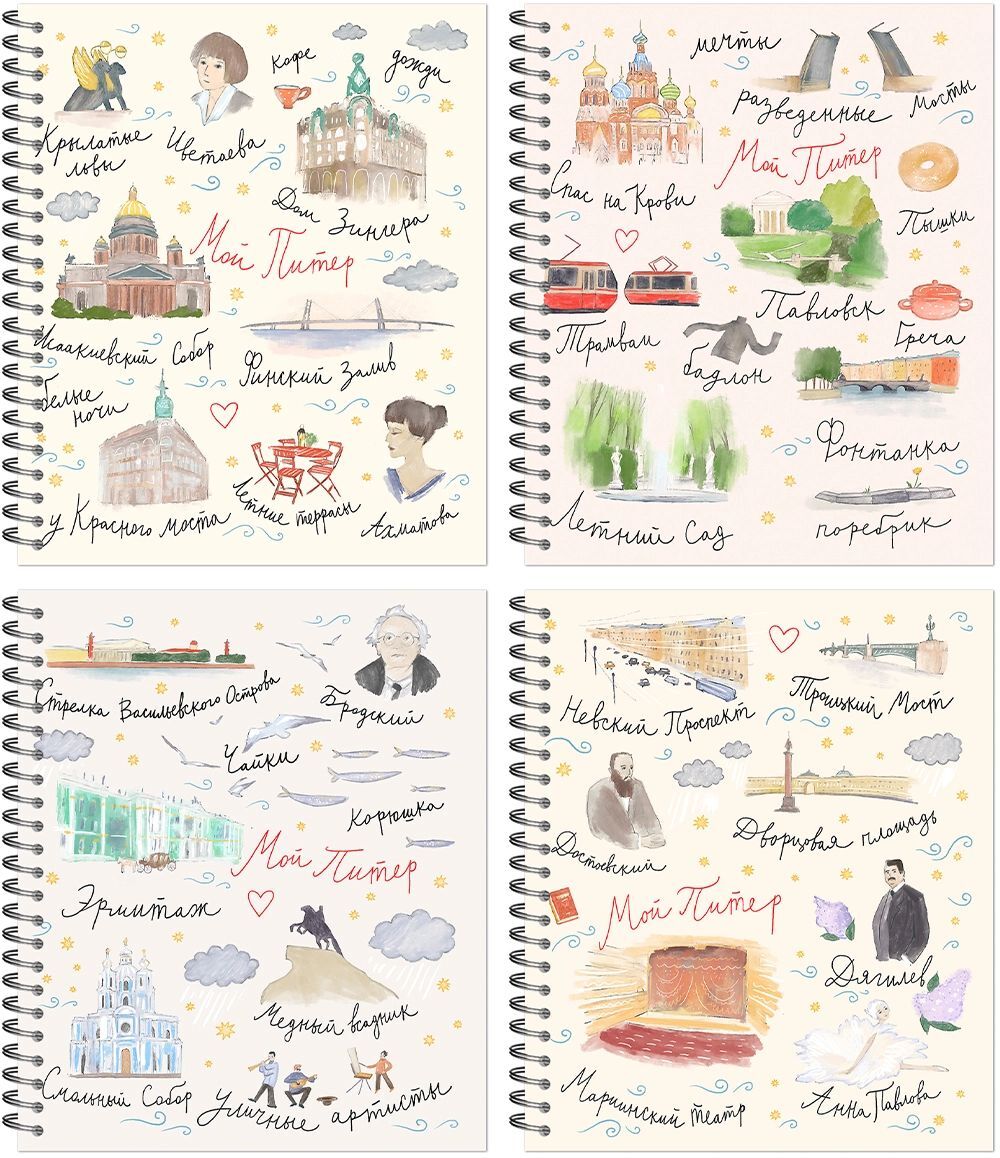 кофе
дожди
Крылатые
львы
Цветаева
Дом Зингера
Мой Питер
Исаакиевский Собор
Финский Залив
белые
ночи
у Красного моста
Летние террасы
Ахматова
мечты
разведенные
мосты
Мой Питер
Спас на Крови
Пышки
Павловск
Трамваи
бадлон
Греча
Фонтанка
Летний Сад
поребрик
Стрелка Васильевского Острова
Бродский
Чайки
Корюшка
Мой Питер
Эрмитаж
Медный всадник
Смольный Собор
Уличные артисты
Невский Проспект
Троицкий Мост
Достоевский
Дворцовая площадь
Мой Питер
Дягилев
Мариинский театр
Анна Павлова